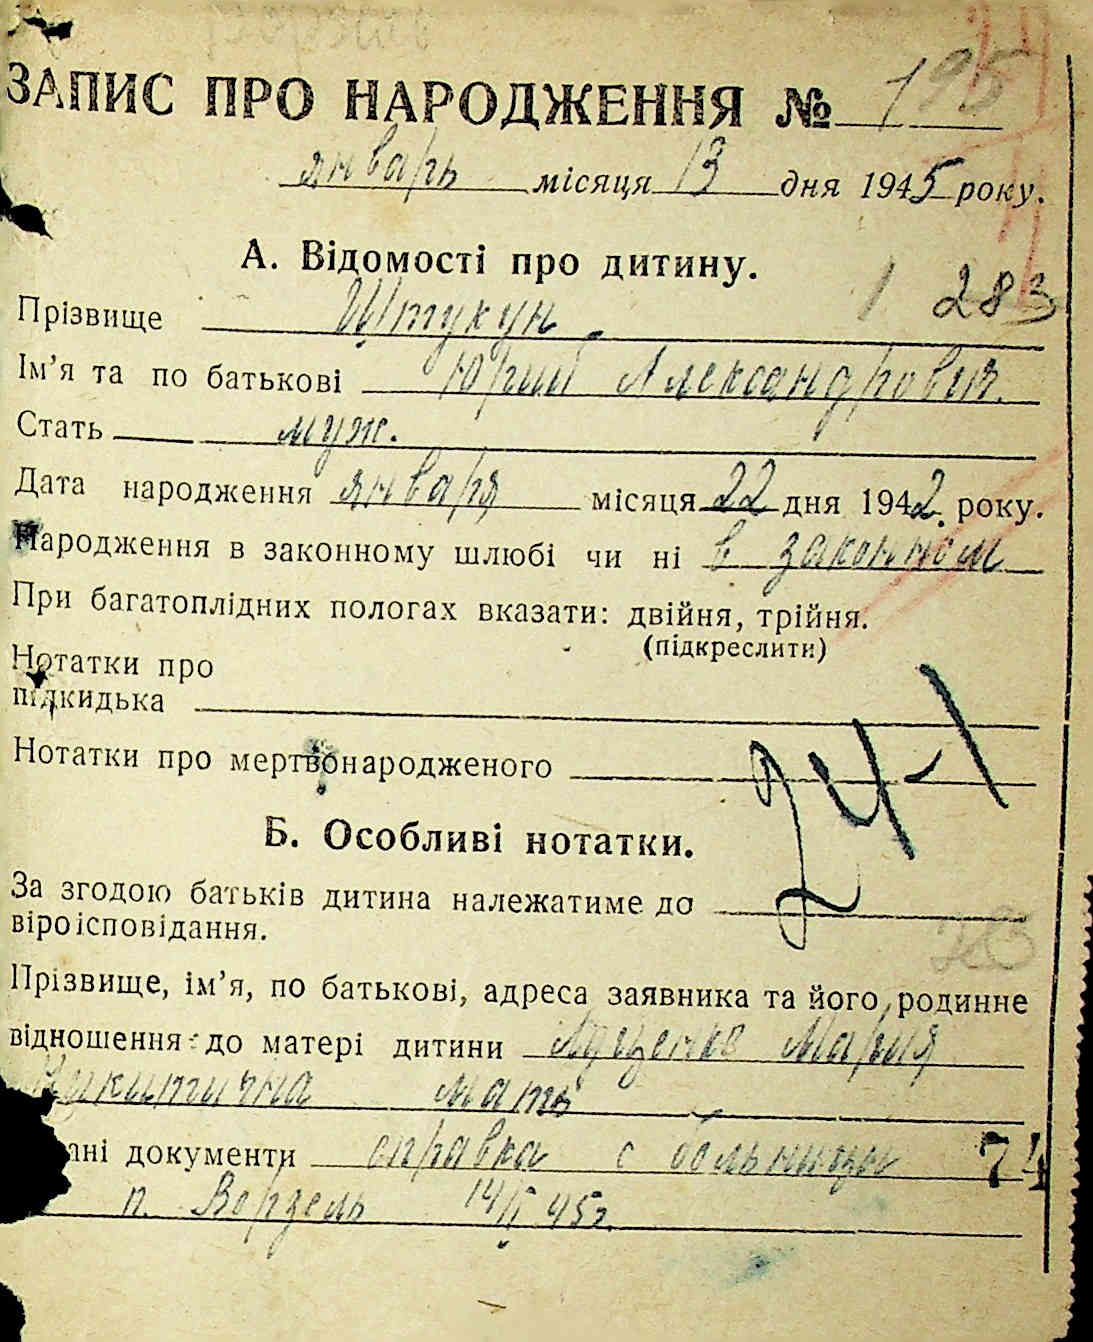 ЗАПИС ПРО НАРОДЖЕННЯ № 195
январь місяця 13 дня 1945 року.
А. Відомості про дитину.
1 283
Прізвище Штукун
Ім’я та по батькові Юрий Александрович
Стать муж.
Дата народження января місяця 22 дня 1942 року.
Народження в законному шлюбі чи ні в законном
При багатоплідних пологах вказати: двійня, трійня.
(підкреслити)
Нотатки про
підкидька
Нотатки про мертвонародженого
Б. Особливі нотатки.
За згодою батьків дитина належатиме до
віроісповідання.
Прізвище, ім’я, по батькові, адреса заявника та його родинне
відношення до матері дитини Луценко Мария
Никитична мать
ані документи справка с больницы 74
п. Ворзель 14/I 45г.